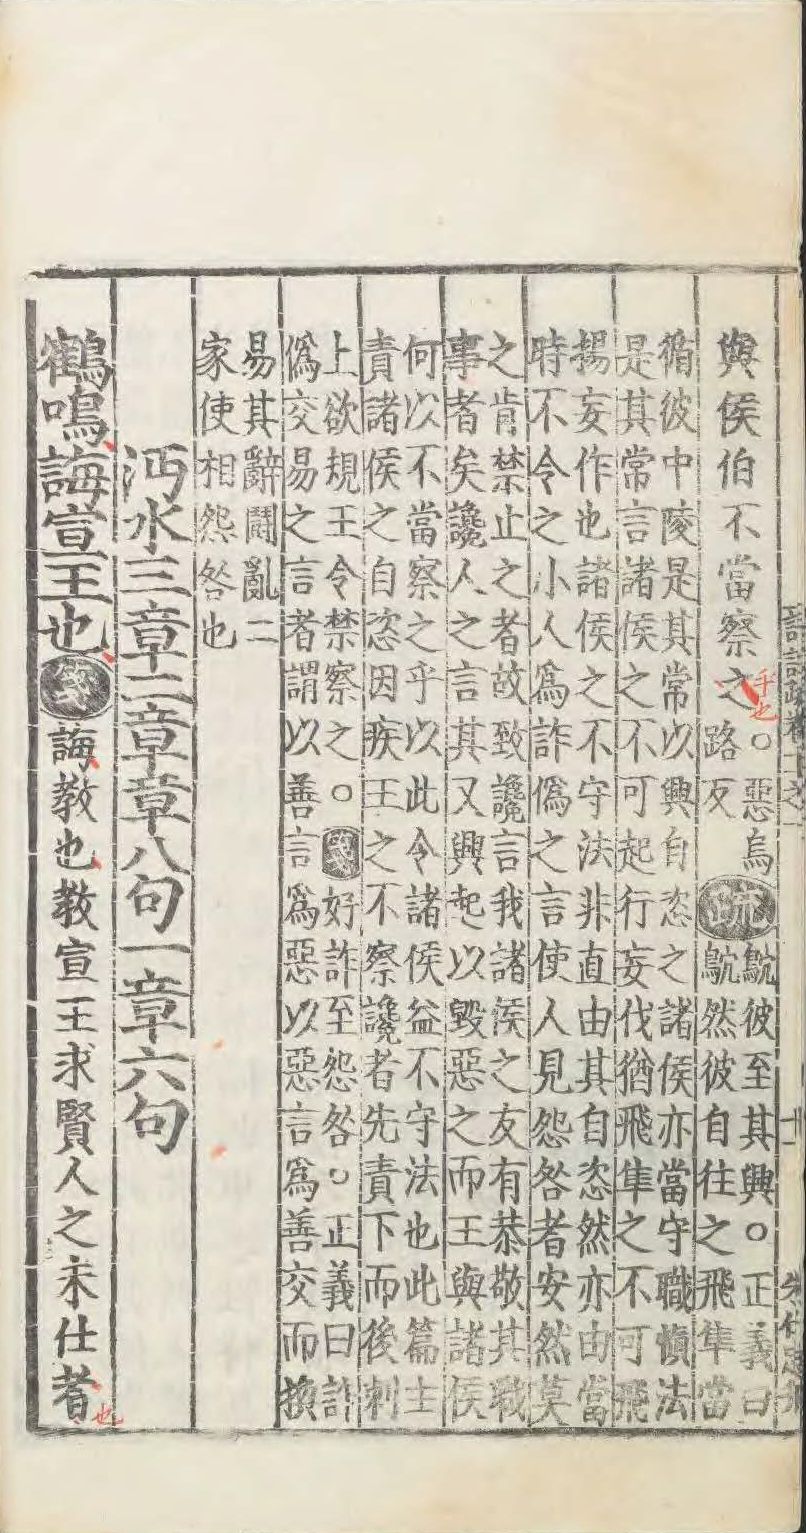 與侯伯不當察之〇惡烏路反疏鴥彼至其興〇正義曰
鴥然彼自往之飛隼當
循彼中陵是其常以興自恣之諸侯亦當守職愼法
是其常言諸侯之不可起行妄伐猶飛隼之不可飛
揚妄作也諸侯之不守法非直由其自恣然亦由當
時不令之小人爲詐僞之言使人見怨咎者安然莫
之肯禁止之者故致讒言我諸侯之友有恭敬其職
事者矣讒人之言其又興起以毀惡之而王與諸侯
何以不當察之乎以此令諸侯益不守法也此篇主
責諸侯之自恣因疾王之不察讒者先責下而後刺
上欲規王令禁察之〇好詐至怨咎〇正義曰詐
僞交易之言者謂以善言爲惡以惡言爲善交而換
易其辭鬬亂二
家使相怨咎也
沔水三章二章章八句一章六句
鶴鳴誨宣王也誨教也教宣王求賢人之未仕者
也